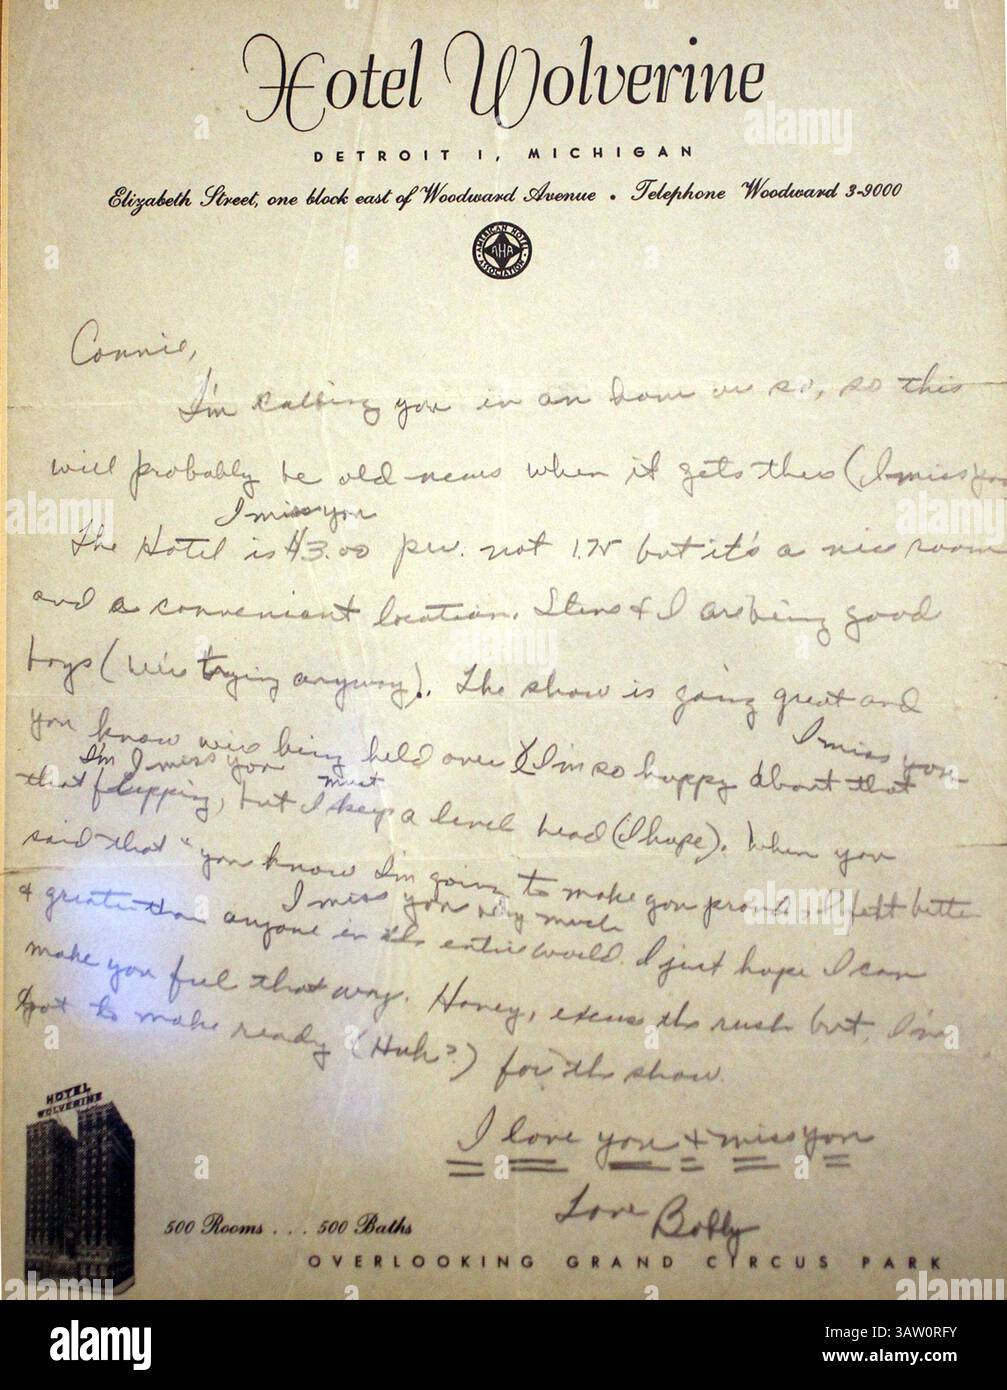 Hotel Wolverine
DETROIT 1, MICHIGAN
Elizabeth Street, one block east of Woodward Avenue • Telephone Woodward 3-9000
AMERICAN HOTEL ASSOCIATION
AHA
Connie,
I'm calling you in an hour or so, so this
will probably be old news when it gets there (I miss you
I miss you
The Hotel is $3.00 per. not 1.75 but it's a nice room
and a convenient location. Steve & I are being good
boys (we're trying anyway). The show is going great and
you know we're being held over & I'm so happy about that
I miss you
I'm I miss you must
that flipping, but I keep a level head (I hope). When you
said that "you know I'm going to make you proud, I felt better
I miss you very much
& greater than anyone in the entire world. I just hope I can
make you feel that way. Honey, excuse the rush but I'm
got to make ready (Huh?) for the show.
I love you & miss you
Love Bobby
HOTEL
WOLVERINE
500 Rooms . . . 500 Baths
OVERLOOKING GRAND CIRCUS PARK
alamy
Image ID: 3AW0RFY
www.alamy.com